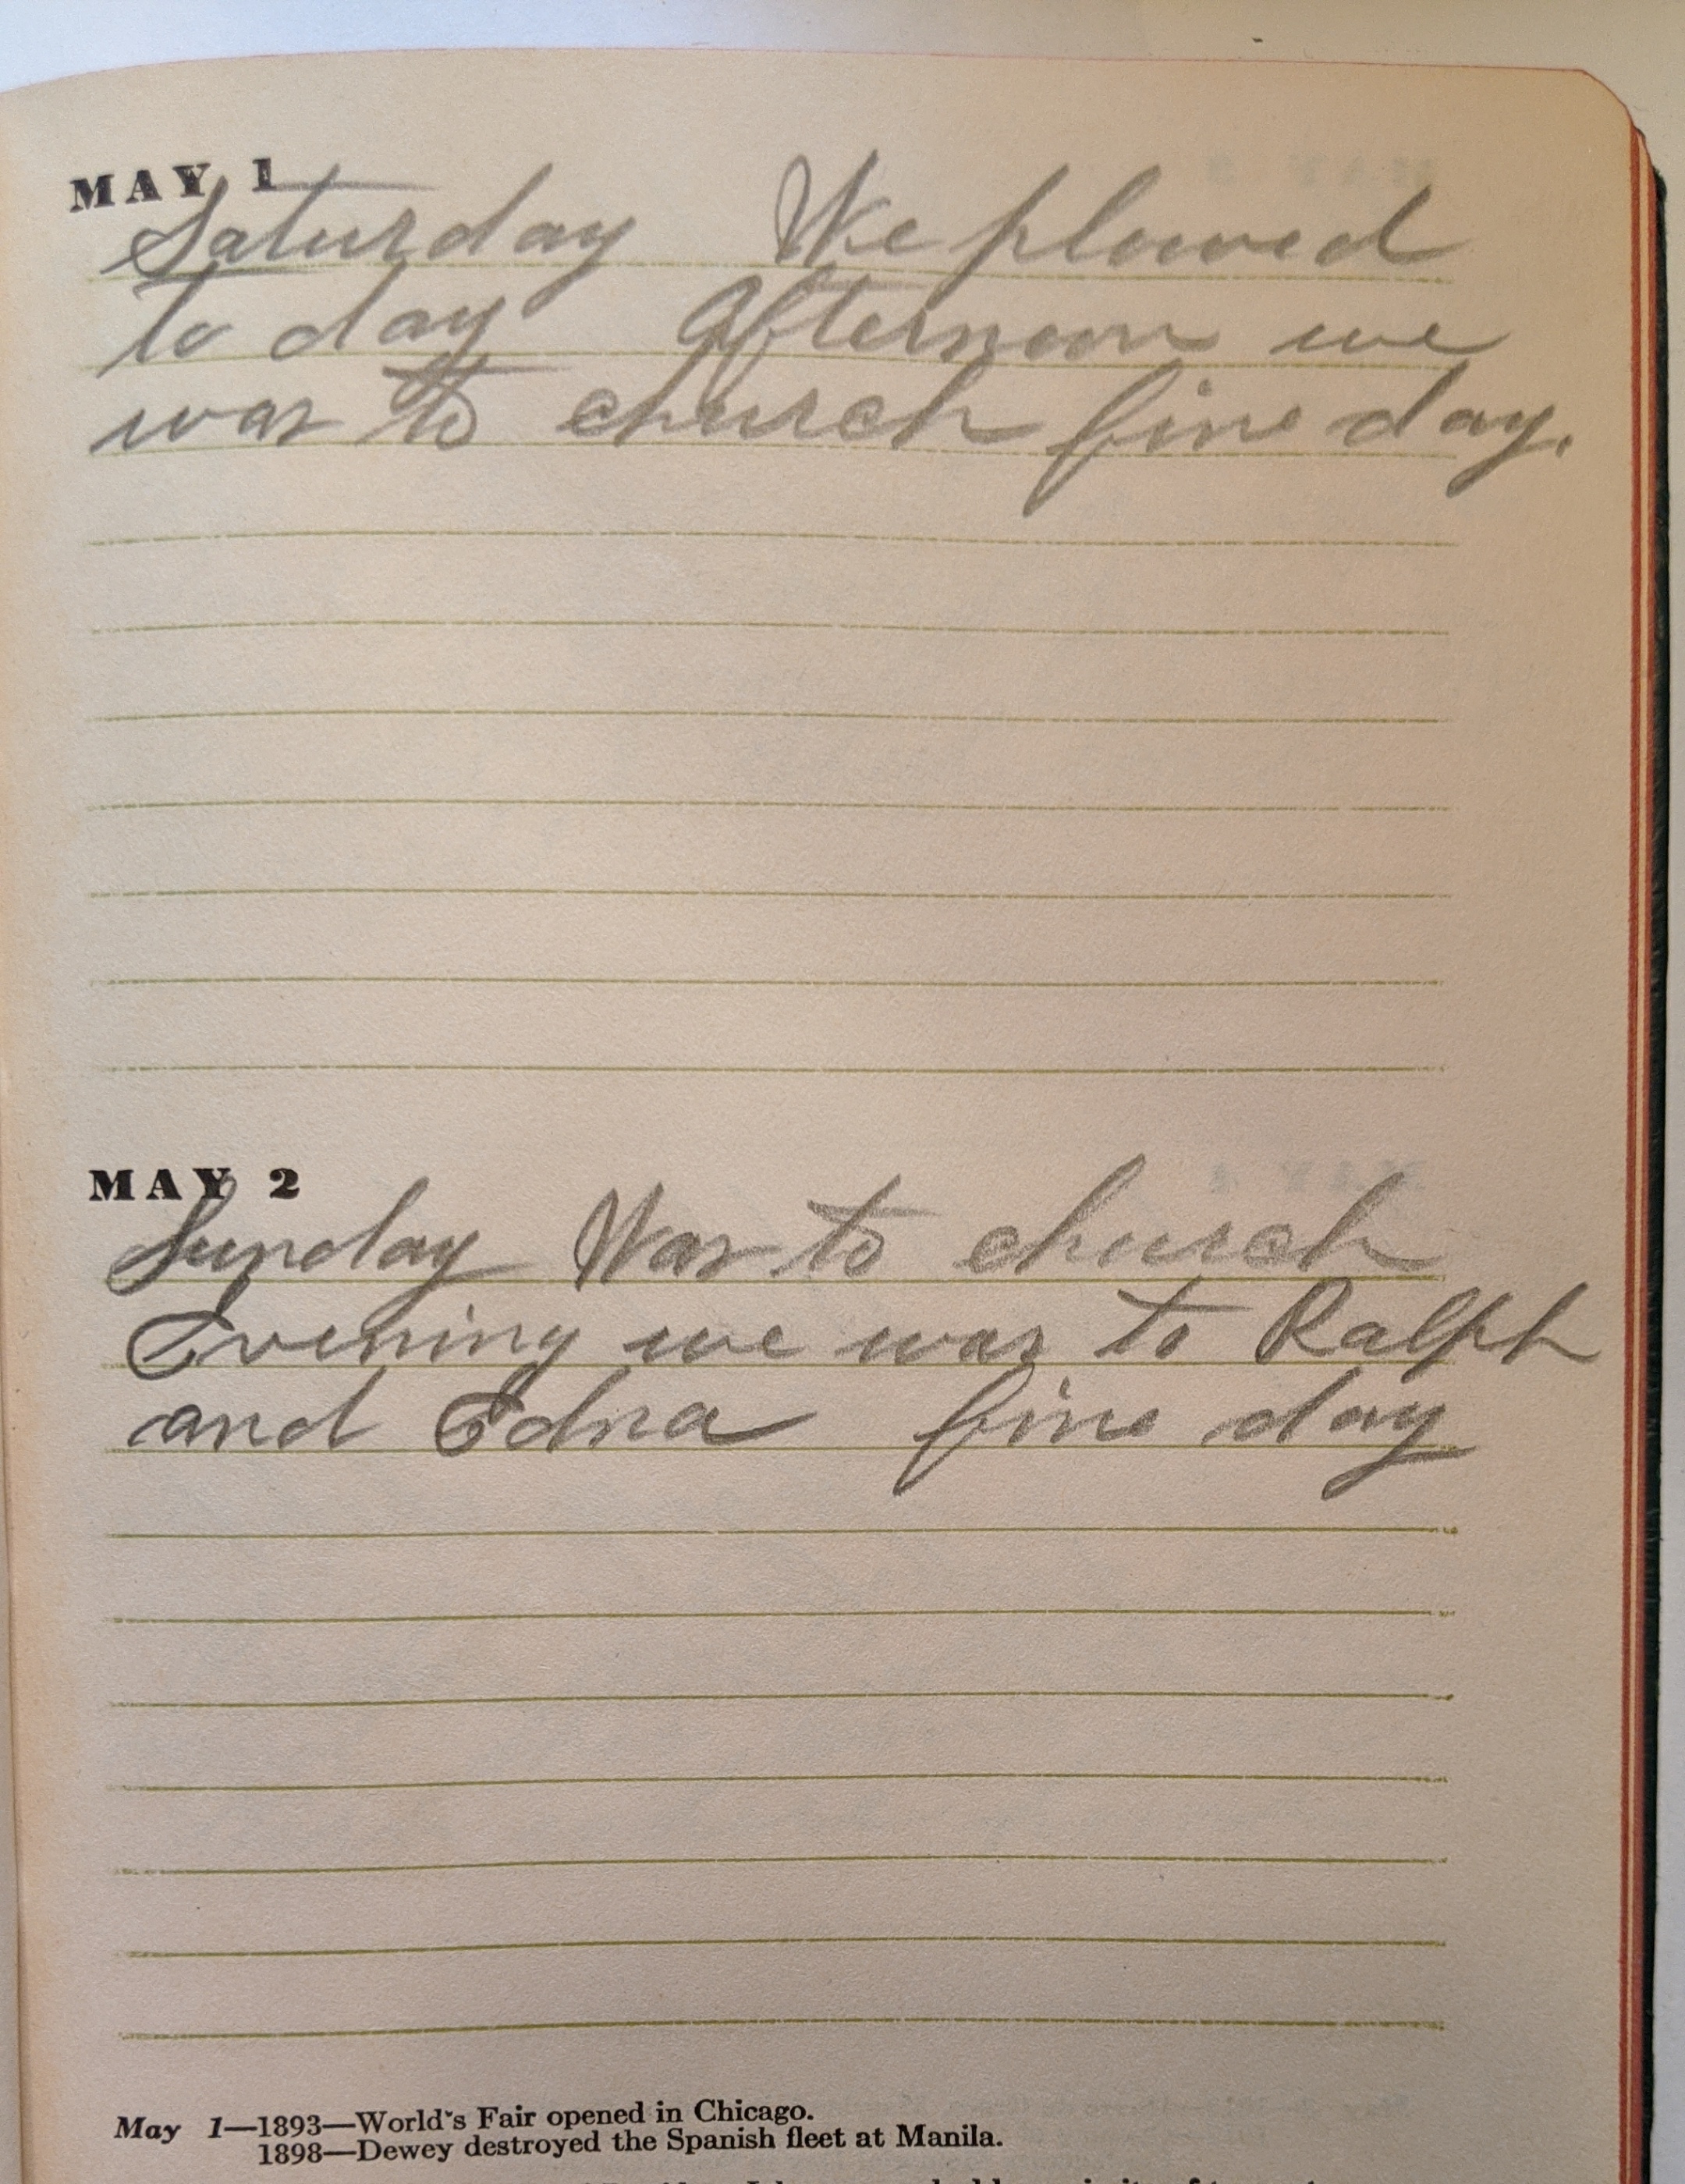 MAY 1
Saturday We plowed
to day Afternoon we
was to church fine day.
MAY 2
Sunday Was to church
Evening we was to Ralph
and Edna fine day
May 1—1893—World's Fair opened in Chicago.
1898—Dewey destroyed the Spanish fleet at Manila.